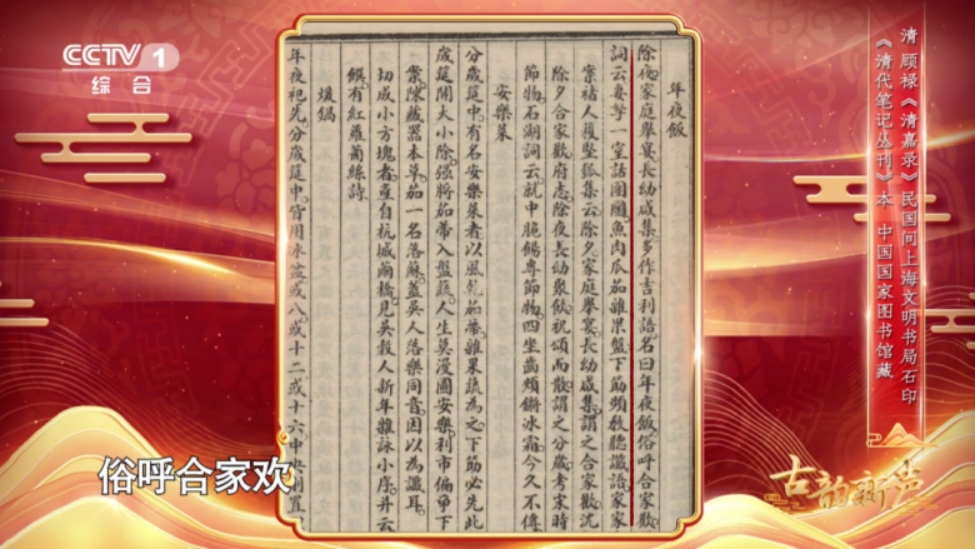 CCTV 1
综合
清 顾禄《清嘉录》民国间上海文明书局石印
《清代笔记丛刊》本 中国国家图书馆藏
年夜飯
除夜家庭舉宴長幼咸集多作吉利語名曰年夜飯俗呼合家歡
詞云妻孥一室話團圞魚肉瓜茄雜果盤下箸頻教聽讖語家家
案褚人穫堅瓠集云除夕家庭舉宴長幼咸集謂之合家歡沈
除夕合家歡府志除夜長幼聚飲祝頌而散謂之分歲考宋時
節物石湖詞云就中脆餳專節物四坐齒頰鏘冰霜今久不傳
安樂菜
分歲筵中有名安樂菜者以風乾茄蒂雜果蔬為之下箸必先此
歲筵開大小除強將茄蒂入盤蔬人生莫漫圖安樂利市偏爭下
案陳藏器本草茄一名落蘇蓋吳人落樂同音因以為讖耳
切成小方塊者產自杭城橋見吳穀人新年雜詠小序并云
饌有紅蘿蔔絲詩
煖鍋
年夜祀先分歲筵中皆用冰盆或八或十二或十六中央則置
俗呼合家欢
古韵新声